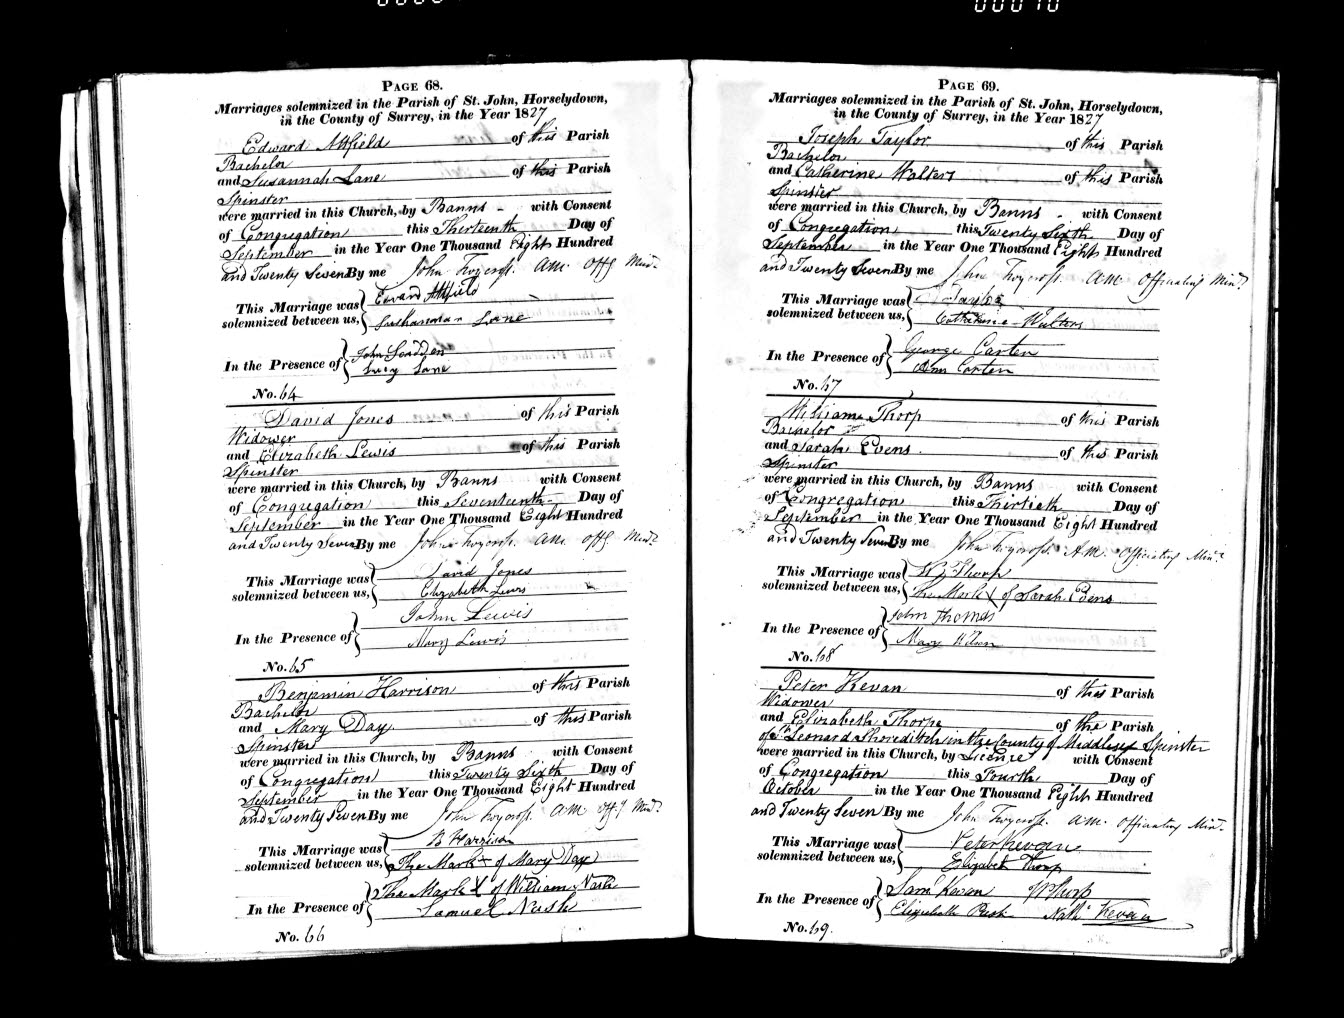 PAGE 68.
Marriages solemnized in the Parish of St. John, Horselydown,
in the County of Surrey, in the Year 1827
Edward Attfield of this Parish
Bachelor
and Susannah Lane of this Parish
Spinster
were married in this Church, by Banns - with Consent
of Congregation this Thirteenth Day of
September in the Year One Thousand Eight Hundred
and Twenty Seven By me John Twycross. A.M. Offg Minr.
This Marriage was Edward Attfield
solemnized between us, Lane
In the Presence of John Scadden
Lucy Lane
No. 64
David Jones of this Parish
Widower
and Elizabeth Lewis of this Parish
Spinster
were married in this Church, by Banns with Consent
of Congregation this Seventeenth Day of
September in the Year One Thousand Eight Hundred
and Twenty Seven By me John Twycross. A.M. Offg Minr.
This Marriage was David Jones
solemnized between us, Elizabeth Lewis
John Lewis
In the Presence of Mary Lewis
No. 65
Benjamin Harrison of this Parish
Bachelor
and Mary Day of this Parish
Spinster
were married in this Church, by Banns with Consent
of Congregation this Twenty Sixth Day of
September in the Year One Thousand Eight Hundred
and Twenty Seven By me John Twycross. A.M. Offg Minr.
This Marriage was B Harrison
solemnized between us, The Mark + of Mary Day
The Mark X of William Nash
In the Presence of Samuel Nash
No. 66
PAGE 69.
Marriages solemnized in the Parish of St. John, Horselydown,
in the County of Surrey, in the Year 1827
Joseph Taylor of this Parish
Bachelor
and Catherine Walters of this Parish
Spinster
were married in this Church, by Banns - with Consent
of Congregation this Twenty Sixth Day of
September in the Year One Thousand Eight Hundred
and Twenty Seven By me John Twycross. A.M. Officiating Minr.
This Marriage was J Taylor
solemnized between us, Catherine Walters
George Carter
In the Presence of Ann Carter
No. 67
William Thorp of this Parish
Bachelor
and Sarah Evens of this Parish
Spinster
were married in this Church, by Banns with Consent
of Congregation this Thirtieth Day of
September in the Year One Thousand Eight Hundred
and Twenty Seven By me John Twycross. A.M. Officiating Minr.
This Marriage was W Thorp
solemnized between us, The Mark X of Sarah Evens
John Thomas
In the Presence of Mary Wilson
No. 68
Peter Kevan of this Parish
Widower
and Elizabeth Thorpe of the Parish
of St Leonard Shoreditch in the County of Middlesex Spinster
were married in this Church, by Licence with Consent
of Congregation this Fourth Day of
October in the Year One Thousand Eight Hundred
and Twenty Seven By me John Twycross. A.M. Officiating Minr.
This Marriage was Peter Kevan
solemnized between us, Elizabeth Thorp
Saml Kevan W Thorp
In the Presence of Elizabeth Nathl Kevan
No. 69.